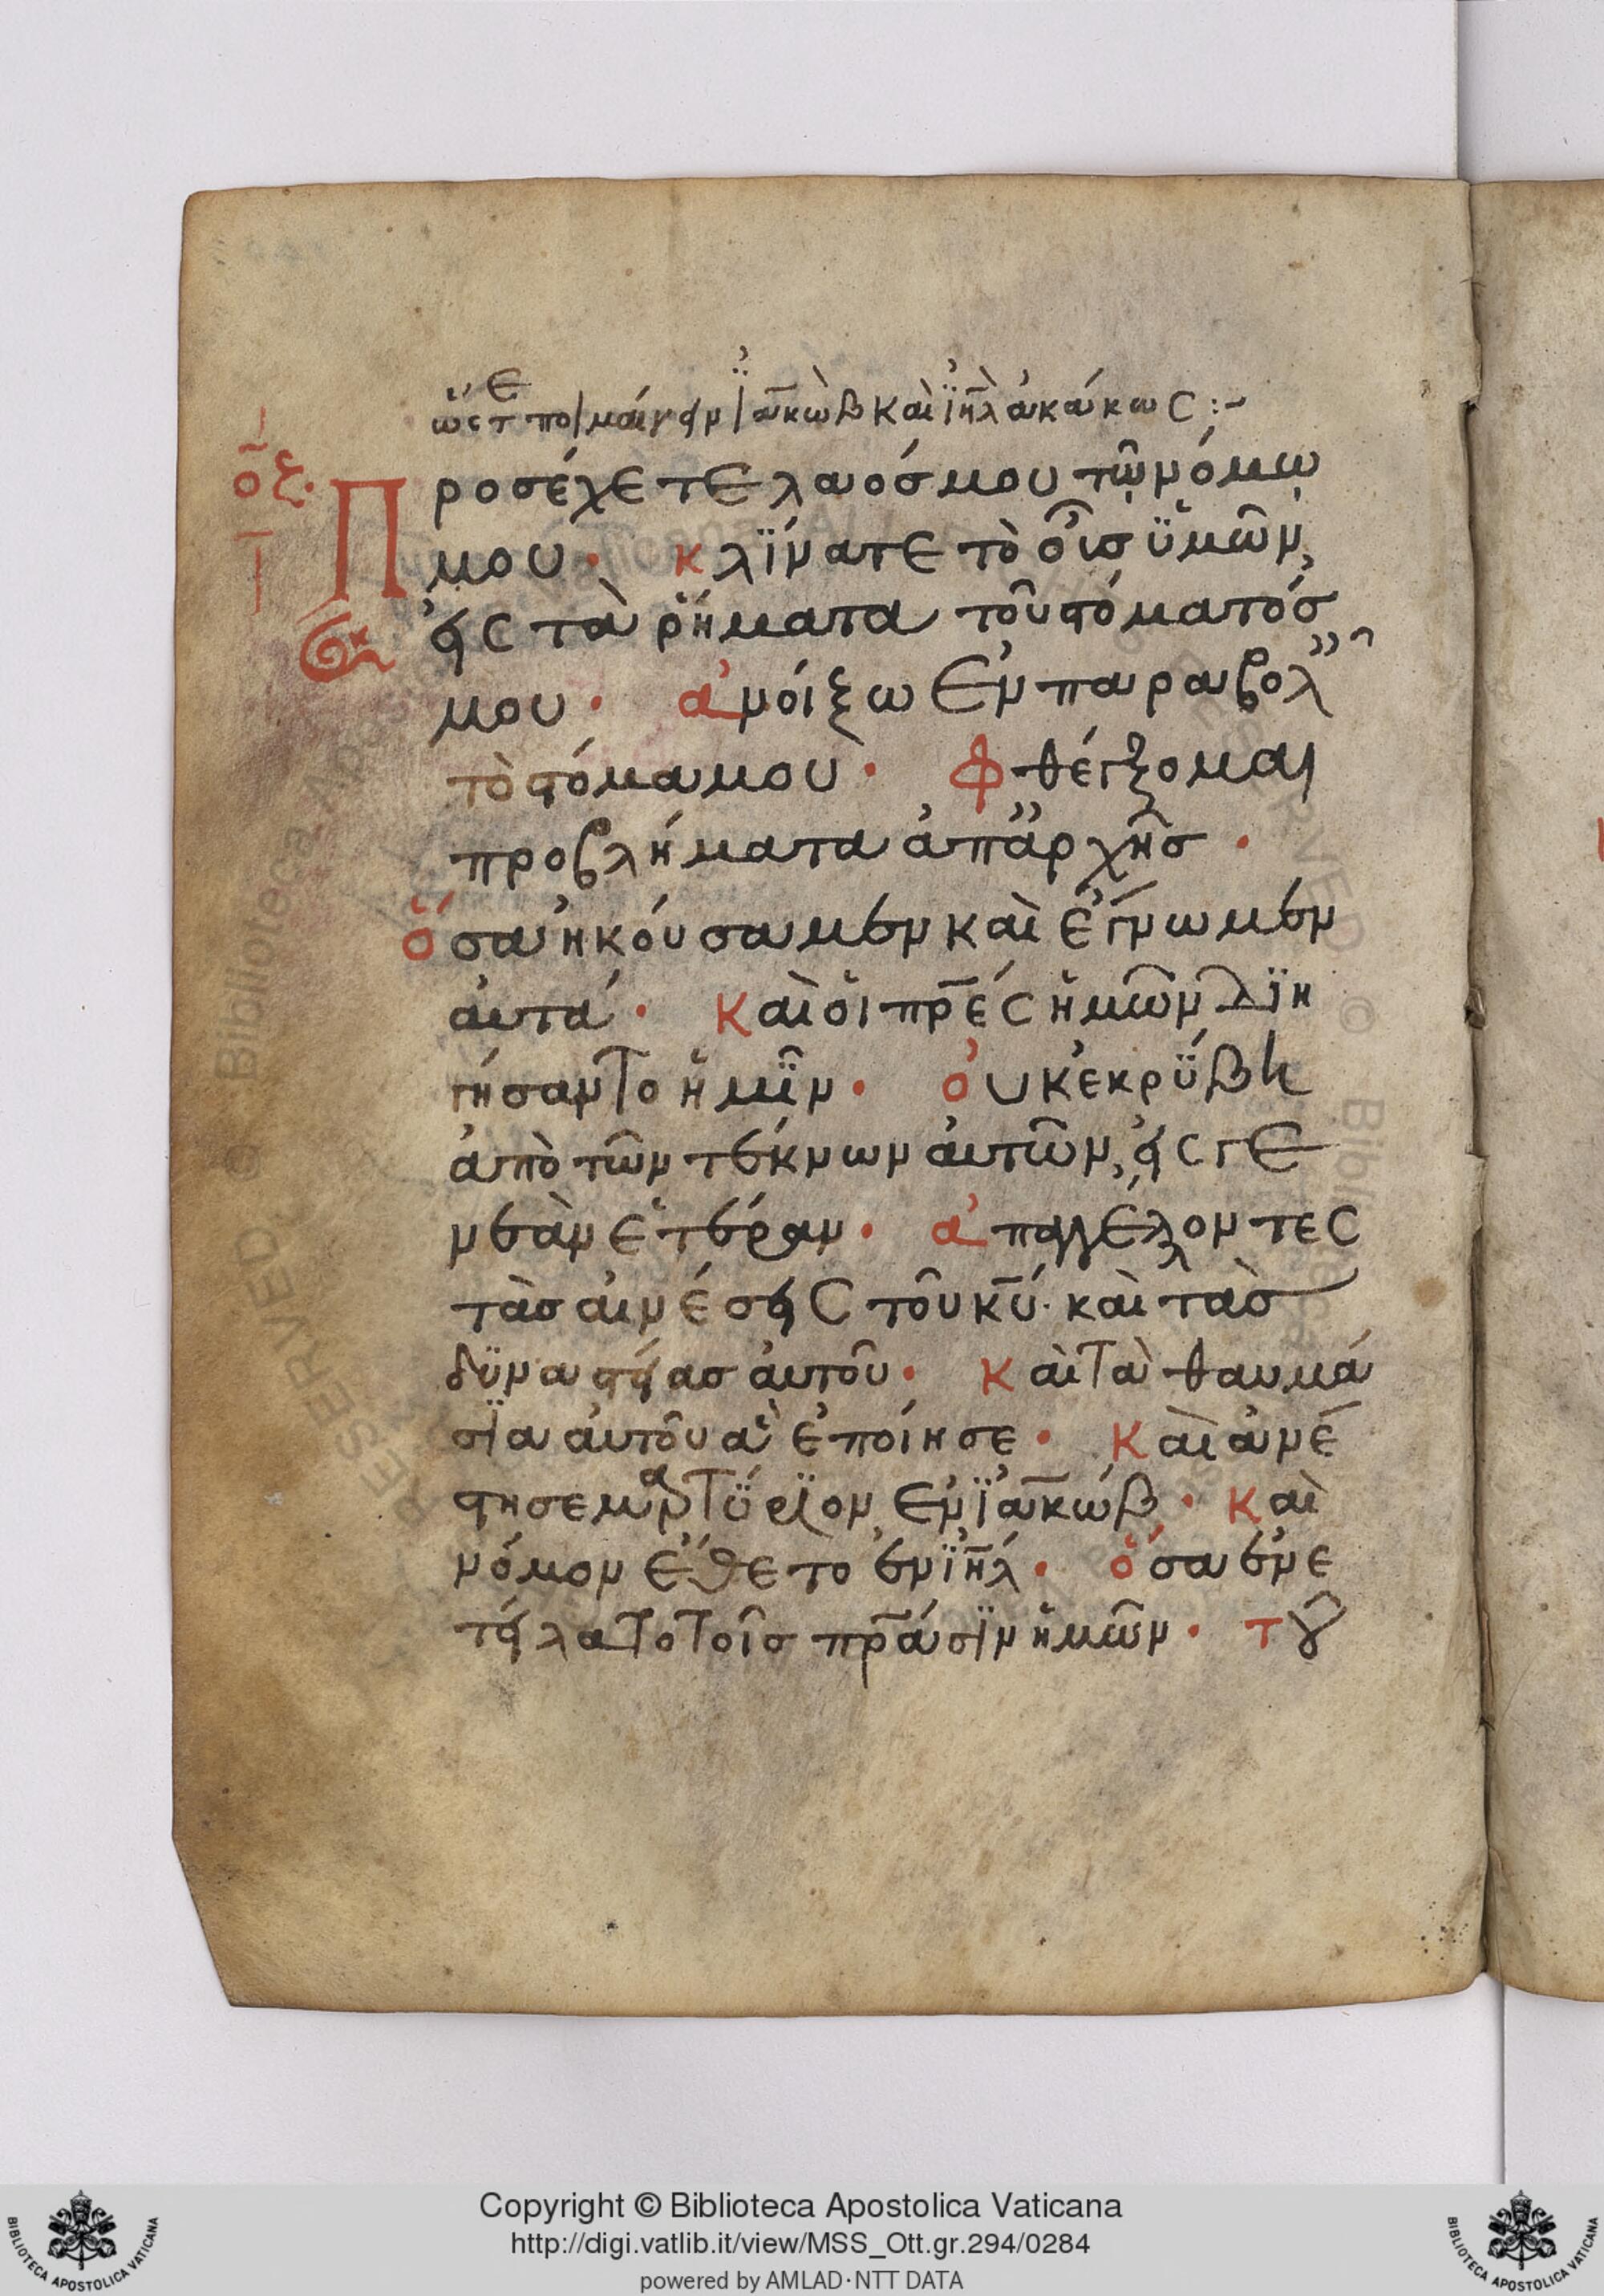 ὥστε ποιμαίνειν ἰακὼβ καὶ ἰηλ ἀκάκως :~
οζ. Προσέχετε λαόσ μου τῶ νόμω
μου· κλίνατε τὸ οὖσ ϋμῶν,
εἰς τὰ ῥήματα τοῦ στόματόσ
μου· ἀνοίξω ἐν παραβολ
τὸ στόμα μου· φθέγξομαι
προβλήματα ἀπ' ἀρχῆσ ·
ὅσα ἠκούσαμεν καὶ ἔγνωμεν
ἀυτά· Καὶ ὁι πρ̅ές ἡμῶν διη
γήσαντο ἡμῖν· ὀυκ ἐκρύβη
ἀπὸ τῶν τέκνων ἀυτῶν, εἰς γε
νεὰν ἑτέραν· ἀπαγγέλλοντες
τὰσ αἰνέσεις τοῦ κ̅ύ· καὶ τὰσ
δϋναστείασ ἀυτοῦ· Καὶ τὰ θαυμά
σϊα ἀυτοῦ ἃ ἐποίησε· Καὶ ἀνέ
στησε μαρτύριον ἐν ϊακώβ· Καὶ
νόμον ἔθετο ἐν ϊη̅λ· ὅσα ἐνε
τείλατο τοῖσ πρ̅άσϊν ἡμῶν· τοῦ
Copyright © Biblioteca Apostolica Vaticana
http://digi.vatlib.it/view/MSS_Ott.gr.294/0284
powered by AMLAD·NTT DATA
BIBLIOTECA APOSTOLICA VATICANA
BIBLIOTECA APOSTOLICA VATICANA